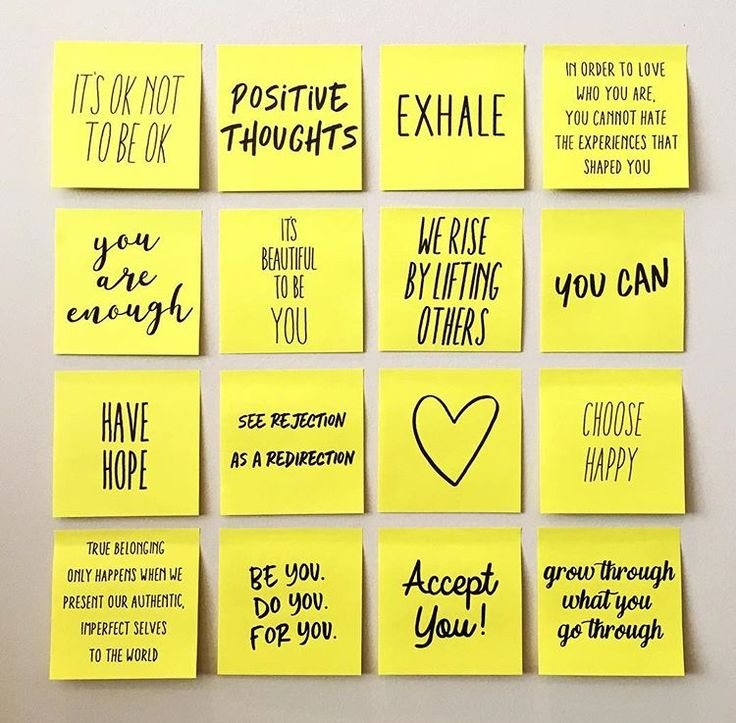 IT'S OK NOT
TO BE OK
POSITIVE
THOUGHTS
EXHALE
IN ORDER TO LOVE
WHO YOU ARE,
YOU CANNOT HATE
THE EXPERIENCES THAT
SHAPED YOU
you
are
enough
IT'S
BEAUTIFUL
TO BE
YOU
WE RISE
BY LIFTING
OTHERS
YOU CAN
HAVE
HOPE
SEE REJECTION
AS A REDIRECTION
CHOOSE
HAPPY
TRUE BELONGING
ONLY HAPPENS WHEN WE
PRESENT OUR AUTHENTIC,
IMPERFECT SELVES
TO THE WORLD
BE YOU.
DO YOU.
FOR YOU.
Accept
You!
grow through
what you
go through